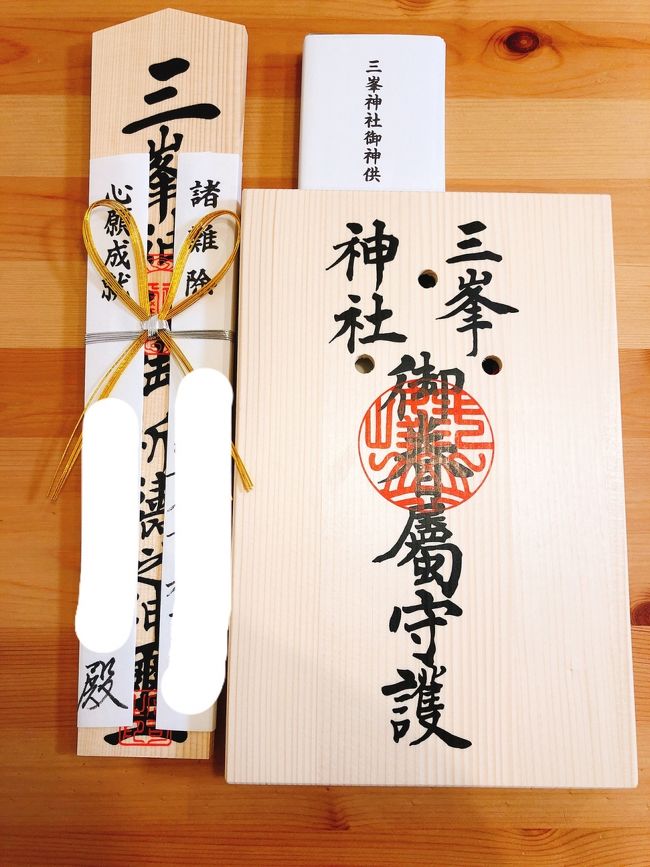 三峯神社御神供
三峯
神社
御眷屬守護
諸難除
心願成就
三峯
祷之
殿